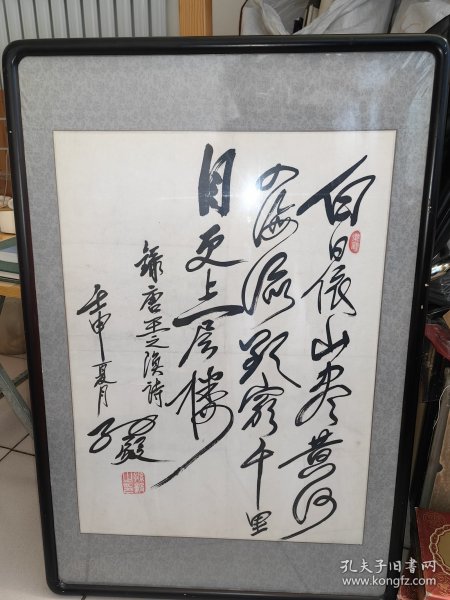 白日依山尽黄河
入海流欲穷千里
目更上层楼
录唐王之涣诗
壬申夏月
孔夫子旧书网
www.kongfz.com